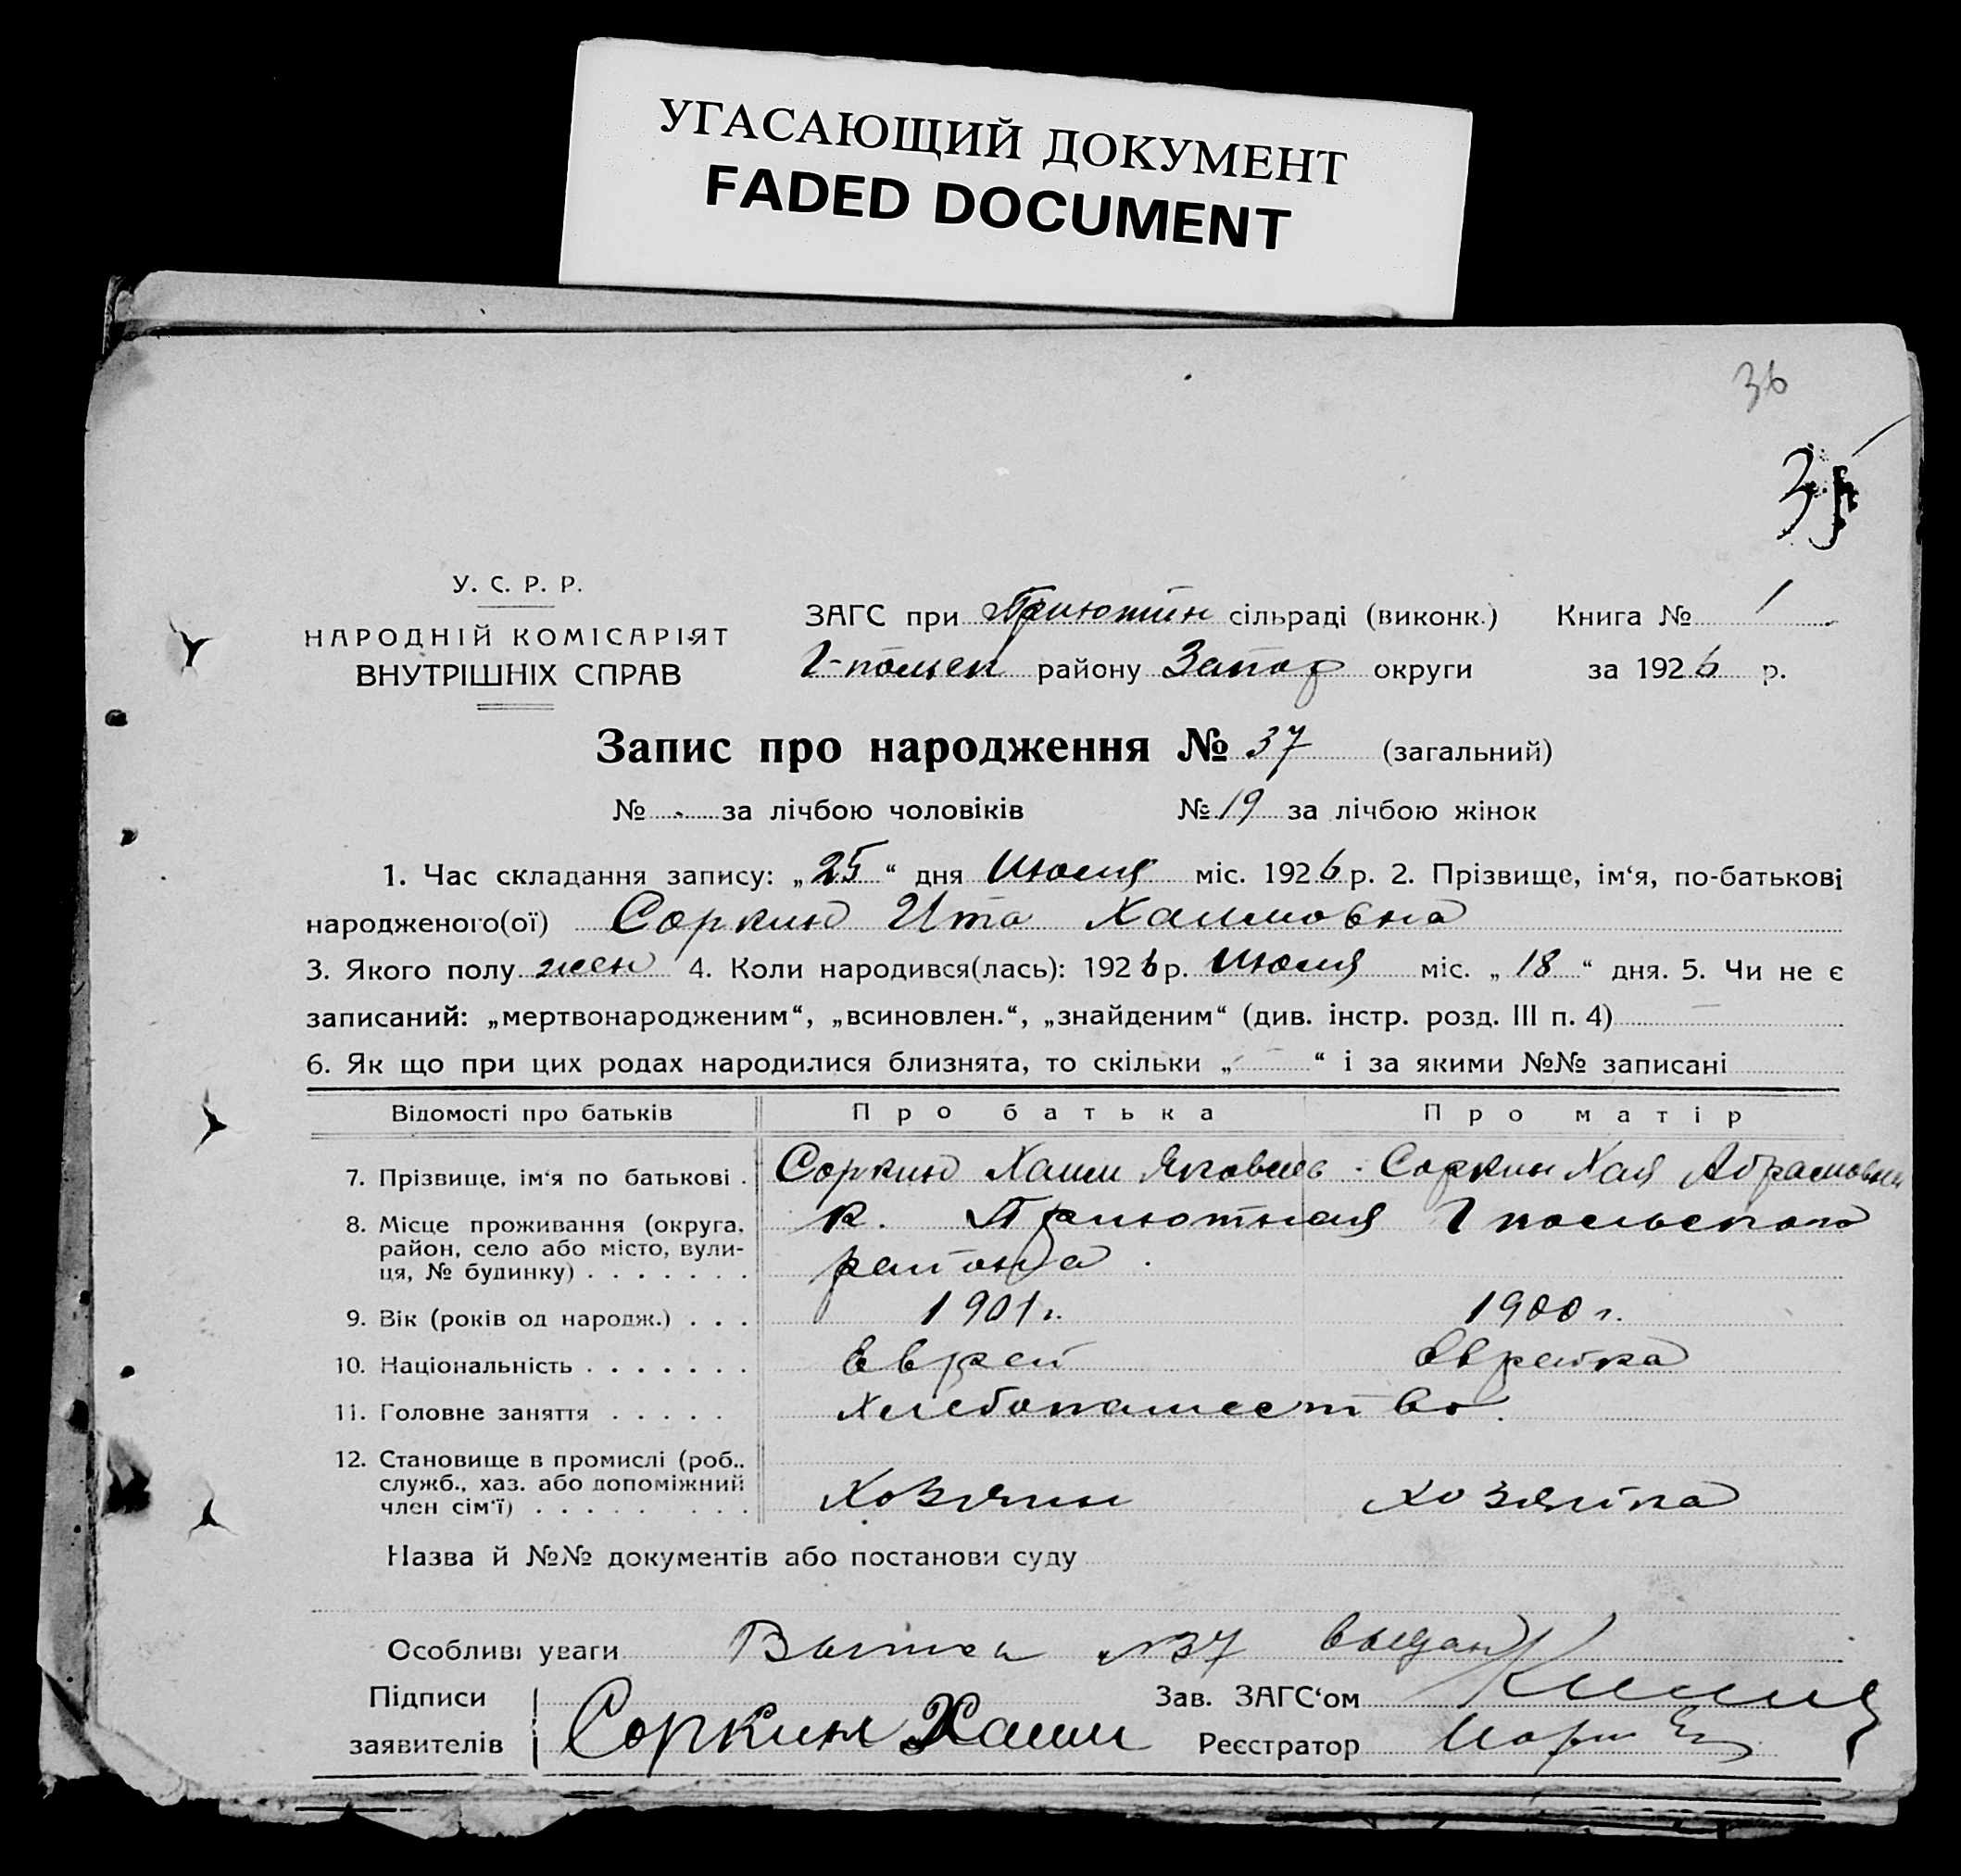 УГАСАЮЩИЙ ДОКУМЕНТ
FADED DOCUMENT
36
У. С. Р. Р.
НАРОДНІЙ КОМІСАРІЯТ
ВНУТРІШНІХ СПРАВ
ЗАГС при Приютин сільраді (виконк.) Книга № 1
Г-польск району Запор округи за 1926 р.
Запис про народження № 37 (загальний)
№ - за лічбою чоловіків № 19 за лічбою жінок
1. Час складання запису: „25“ дня Июля міс. 1926 р. 2. Прізвище, ім‘я, по-батькові
народженого(ої) Соркин Ита Хаимовна
3. Якого полу жен 4. Коли народився(лась): 1926 р. Июля міс. „18“ дня. 5. Чи не є
записаний: „мертвонародженим“, „всиновлен.“, „знайденим“ (див. інстр. розд. III п. 4) —
6. Як що при цих родах народилися близнята, то скільки „—“ і за якими №№ записані
Відомості про батьків Про батька Про матір
7. Прізвище, ім‘я по батькові . Соркин Хаим Яковлев. Соркин Хая Абрамовна
8. Місце проживання (округа, к. Приютная Г польского
район, село або місто, вули- района.
ця, № будинку) . . . . . . .
9. Вік (років од народж.) . . . 1901 г. 1900 г.
10. Національність . . . . . . . Еврей Еврейка
11. Головне заняття . . . . . Хлебопашество.
12. Становище в промислі (роб.,
служб., хаз. або допоміжний Хозяин хозяйка
член сім‘ї) . . . . . . . .
Назва й №№ документів або постанови суду
Особливі уваги №37 выдан
Підписи Зав. ЗАГС‘ом
заявителів Соркин Хаим Реєстратор